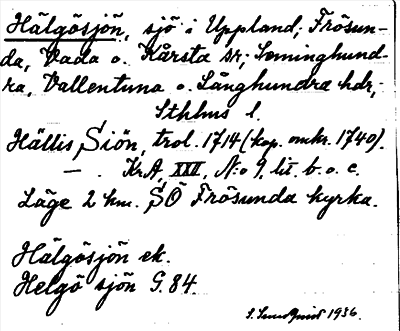 Hälgösjön, sjö i Uppland; Frösun-
da, Vada o. Kårsta sr; Seminghund-
ra, Vallentuna o. Långhundra hdr,
Sthlms l.
Hällis Siön, trol. 1714 (kop. omkr. 1740).
— . Kr.A, XXII, N:o 9, lit. b. o. c.
Läge 2 km. SÖ Frösunda kyrka.
Hälgösjön ek.
Helgö sjön G. 84.
1936.